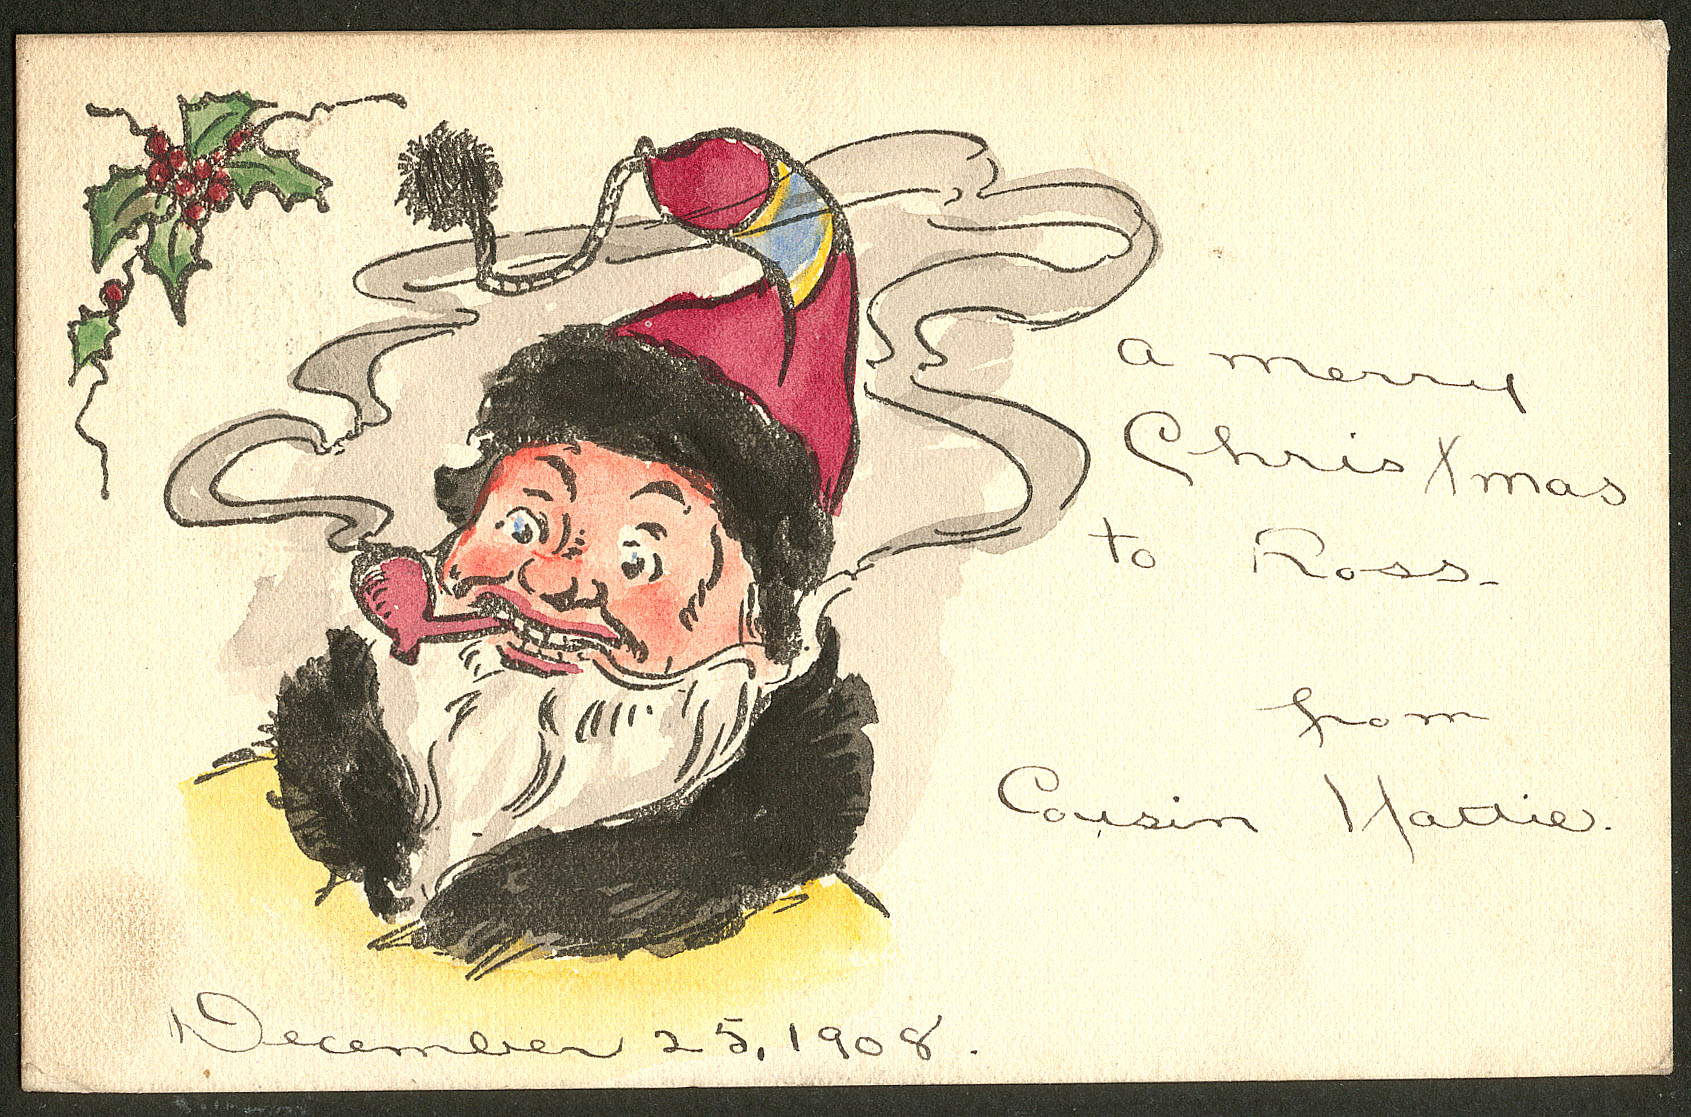 a merry
ChrisXmas
to Ross.
from
Cousin Hattie.
December 25, 1908.